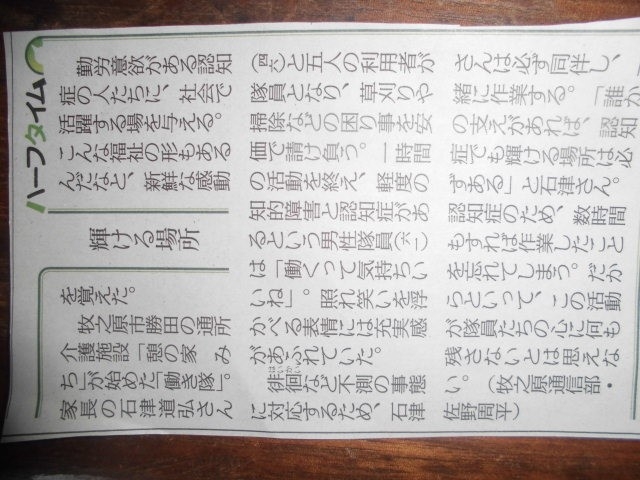 ハーフタイム
輝ける場所
勤労意欲がある認知
症の人たちに、社会で
活躍する場を与える。
こんな福祉の形もある
んだなと、新鮮な感動
を覚えた。
牧之原市勝田の通所
介護施設「憩の家 み
ち」が始めた「働き隊」。
家長の石津道弘さん
(四八)と五人の利用者が
隊員となり、草刈りや
掃除などの困り事を安
価で請け負う。一時間
の活動を終え、軽度の
知的障害と認知症があ
るという男性隊員(六一)
は「働くって気持ちい
いね」。照れ笑いを浮
かべる表情には充実感
があふれていた。
はいかい
徘徊など不測の事態
に対応するため、石津
さんは必ず同伴し、一
緒に作業する。「誰か
の支えがあれば、認知
症でも輝ける場所は必
ずある」と石津さん。
認知症のため、数時間
もすれば作業したこと
を忘れてしまう。だか
らといって、この活動
が隊員たちの心に何も
残さないとは思えな
い。(牧之原通信部・
佐野周平)